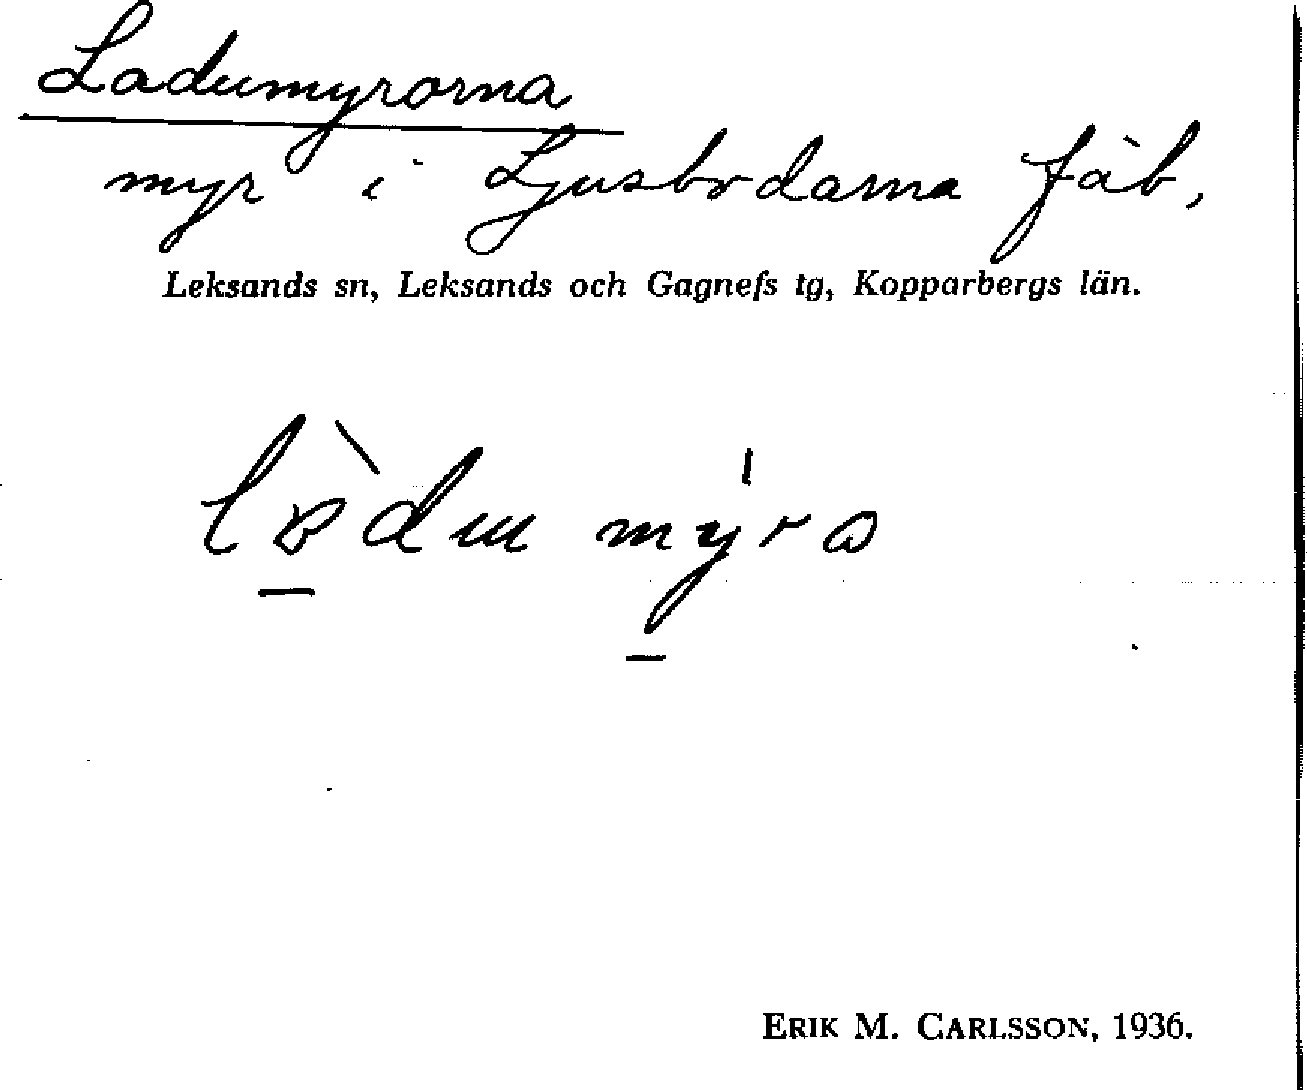 Ladumyrorna
myr i Ljusbodarna fäb,
Leksands sn, Leksands och Gagnefs tg, Kopparbergs län.
ERIK M. CARLSSON, 1936.